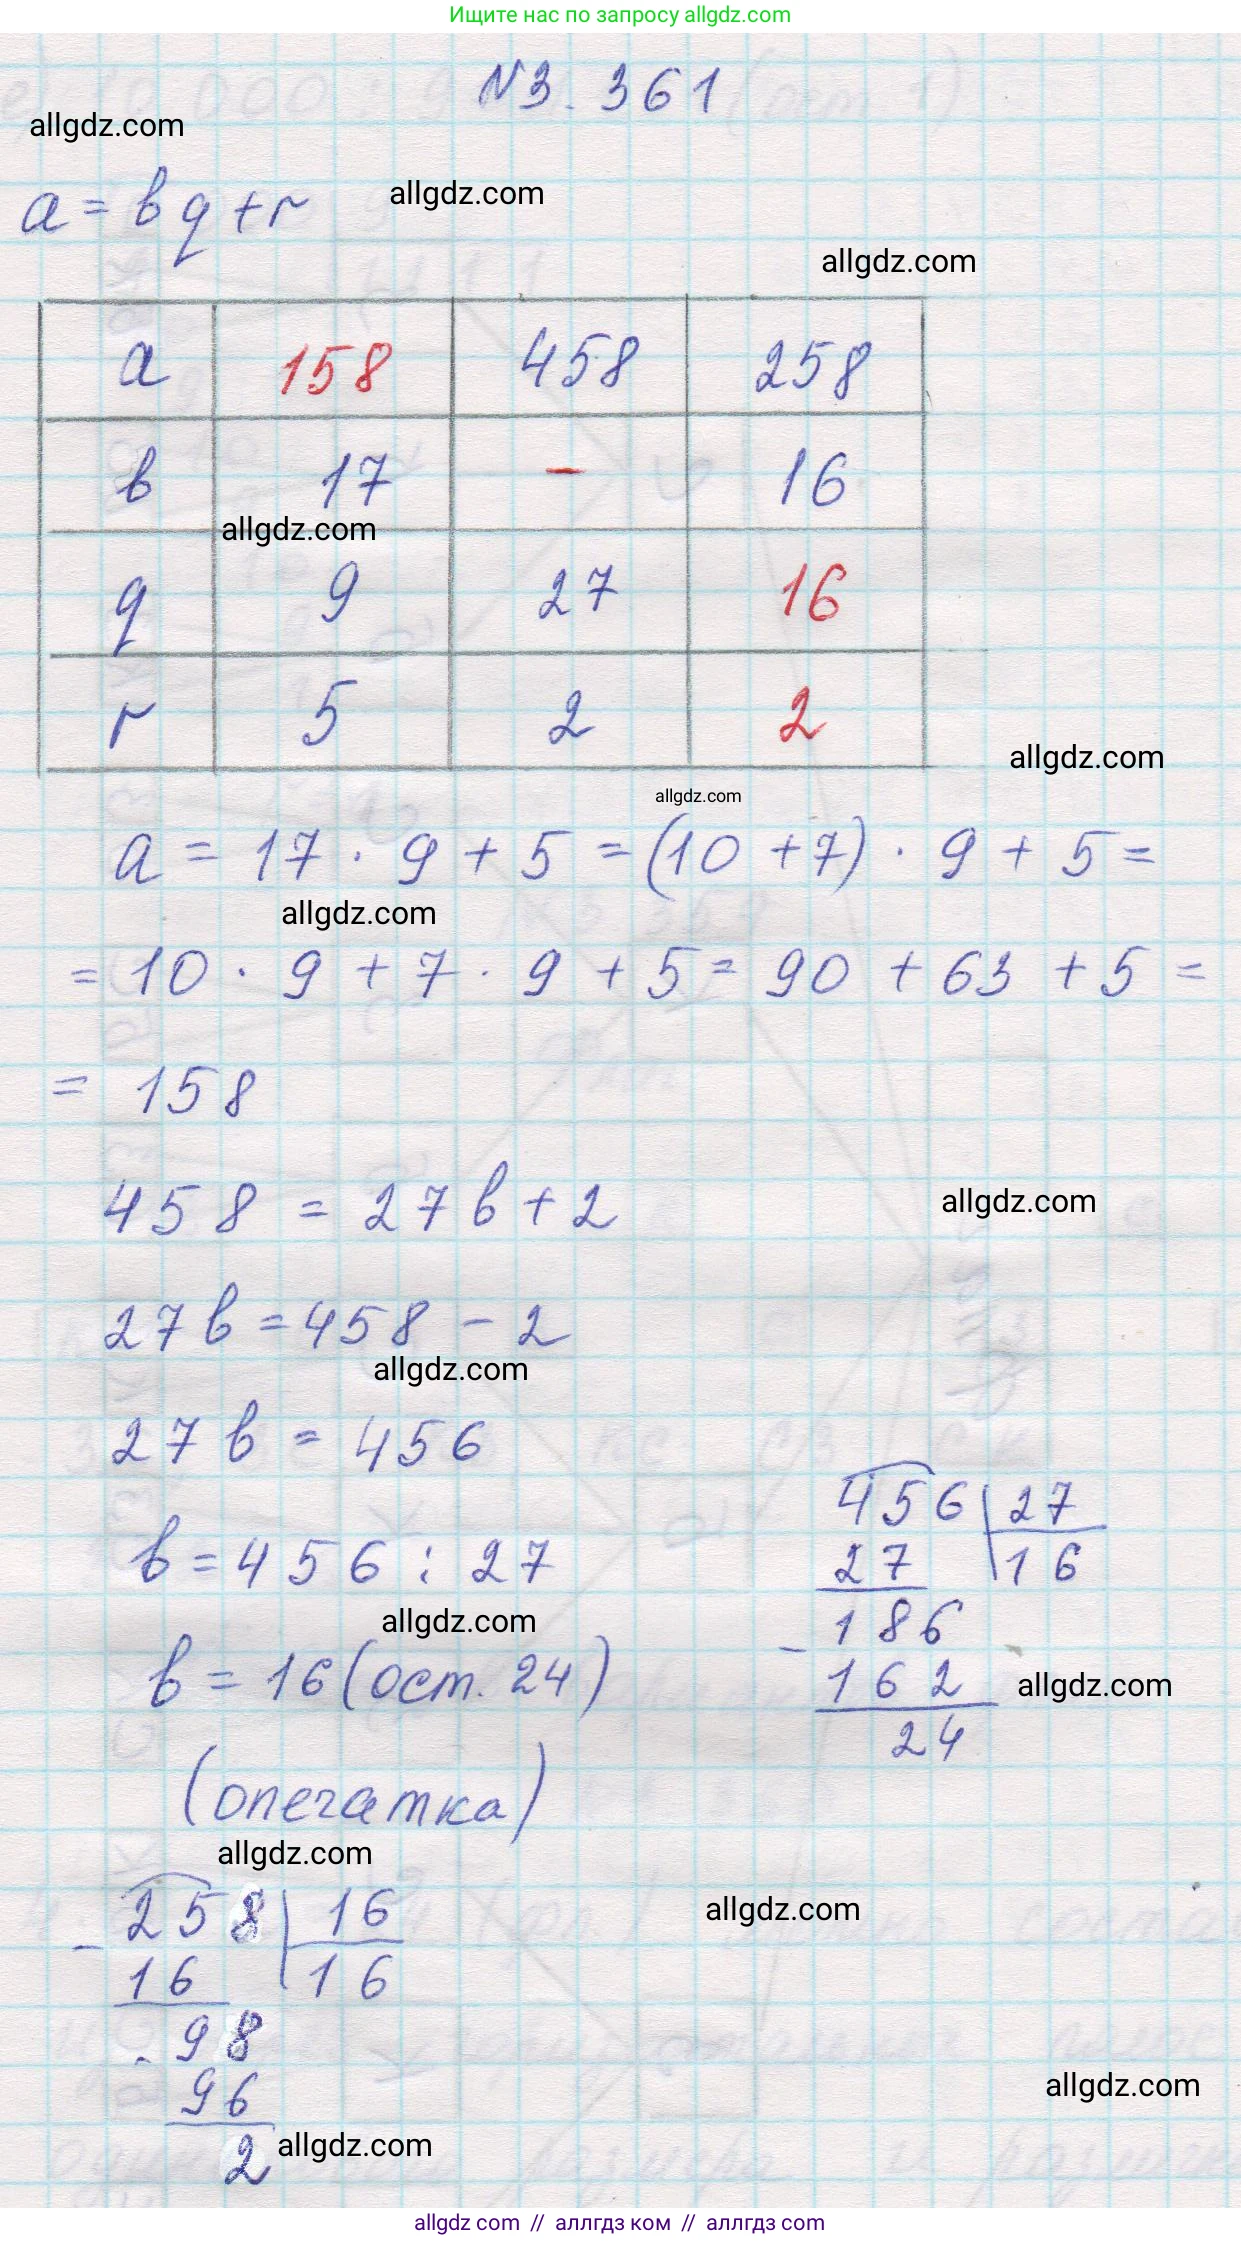 Ищите нас по запросу allgdz.com
№3.361
allgdz.com
a = bq + r
allgdz.com
allgdz.com
a 158 458 258
b 17 - 16
allgdz.com
q 9 27 16
r 5 2 2
allgdz.com
allgdz.com
a = 17 · 9 + 5 = (10 + 7) · 9 + 5 =
allgdz.com
= 10 · 9 + 7 · 9 + 5 = 90 + 63 + 5 =
= 158
458 = 27b + 2
allgdz.com
27b = 458 - 2
allgdz.com
27b = 456
b = 456 : 27
allgdz.com
b = 16 (ост. 24)
456 | 27
27 | 16
- 186
162
allgdz.com
24
(опечатка)
allgdz.com
- 258 | 16
16 | 16
allgdz.com
- 98
96
allgdz.com
2
allgdz.com
allgdz com // аллгдз ком // аллгдз com